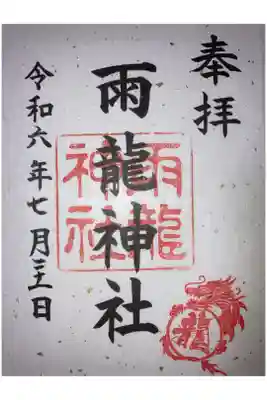 奉拝
雨龍神社
雨龍
神社
令和六年七月三十一日